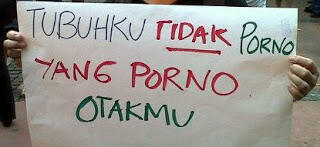 TUBUHKU TIDAK PORNO
YANG PORNO
OTAKMU